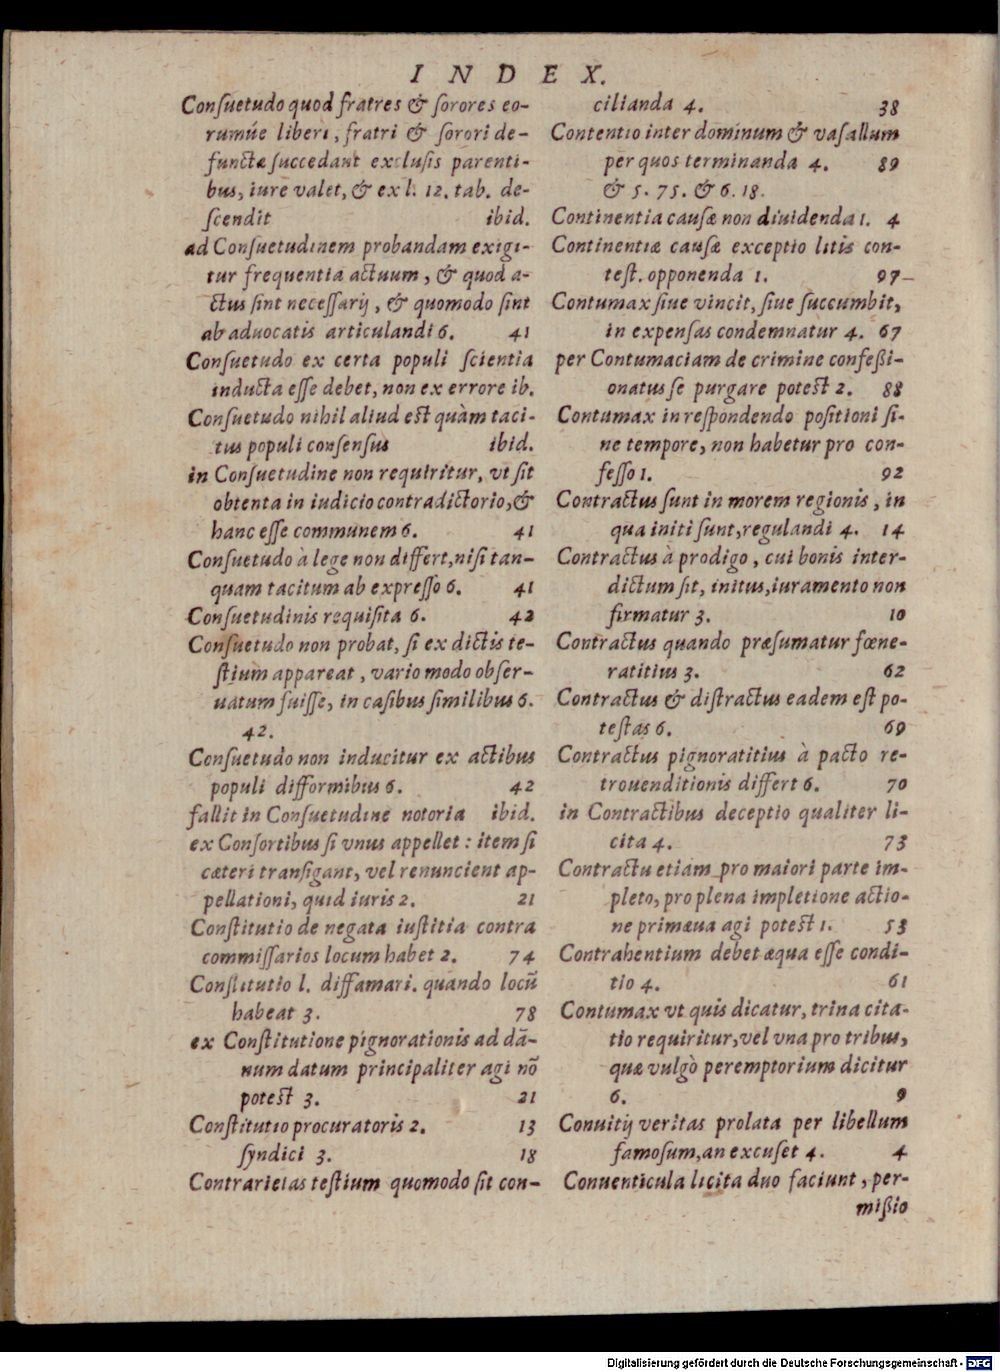 INDEX.
Conſuetudo quod fratres & ſorores eo-
rumúe liberi, fratri & ſorori de-
functæ ſuccedant excluſis parenti-
bus, iure valet, & ex l. 12. tab. de-
ſcendit ibid.
ad Conſuetudinem probandam exigi-
tur frequentia actuum, & quod a-
ctus ſint neceſſarij, & quomodo ſint
ab aduocatis articulandi 6. 41
Conſuetudo ex certa populi ſcientia
inducta eſſe debet, non ex errore ib.
Conſuetudo nihil aliud est quàm taci-
tus populi conſenſus ibid.
in Conſuetudine non requiritur, vt ſit
obtenta in iudicio contradictorio, &
hanc eſſe communem 6. 41
Conſuetudo à lege non differt, niſi tan-
quam tacitum ab expreſſo 6. 41
Conſuetudinis requiſita 6. 42
Conſuetudo non probat, ſi ex dictis te-
ſtium appareat, vario modo obſer-
uatum fuiſſe, in caſibus ſimilibus 6.
42.
Conſuetudo non inducitur ex actibus
populi difformibus 6. 42
fallit in Conſuetudine notoria ibid.
ex Conſortibus ſi vnus appellet: item ſi
cæteri tranſigant, vel renuncient ap-
pellationi, quid iuris 2. 21
Conſtitutio de negata iuſtitia contra
commiſſarios locum habet 2. 74
Conſtitutio l. diffamari. quando locū
habeat 3. 78
ex Conſtitutione pignorationis ad dā-
num datum principaliter agi nō
potest 3. 21
Conſtitutio procuratoris 2. 13
ſyndici 3. 18
Contrarietas teſtium quomodo ſit con-
cilianda 4. 38
Contentio inter dominum & vaſallum
per quos terminanda 4. 89
& 5. 75. & 6. 18.
Continentia cauſæ non diuidenda 1. 4
Continentiæ cauſæ exceptio litis con-
teſt. opponenda 1. 97
Contumax ſiue vincit, ſiue ſuccumbit,
in expenſas condemnatur 4. 67
per Contumaciam de crimine confeßi-
onatus ſe purgare potest 2. 88
Contumax in reſpondendo poſitioni ſi-
ne tempore, non habetur pro con-
feſſo 1. 92
Contractus ſunt in morem regionis, in
qua initi ſunt, regulandi 4. 14
Contractus à prodigo, cui bonis inter-
dictum ſit, initus, iuramento non
firmatur 3. 10
Contractus quando præſumatur fœne-
ratitius 3. 62
Contractus & diſtractus eadem eſt po-
teſtas 6. 69
Contractus pignoratitius à pacto re-
trouenditionis differt 6. 70
in Contractibus deceptio qualiter li-
cita 4. 73
Contractu etiam pro maiori parte im-
pleto, pro plena impletione actio-
ne primæua agi potest 1. 53
Contrahentium debet æqua eſſe condi-
tio 4. 61
Contumax vt quis dicatur, trina cita-
tio requiritur, vel vna pro tribus,
quæ vulgò peremptorium dicitur
6. 9
Conuitij veritas prolata per libellum
famoſum, an excuſet 4. 4
Conuenticula licita duo faciunt, per-
mißio
Digitalisierung gefördert durch die Deutsche Forschungsgemeinschaft - DFG